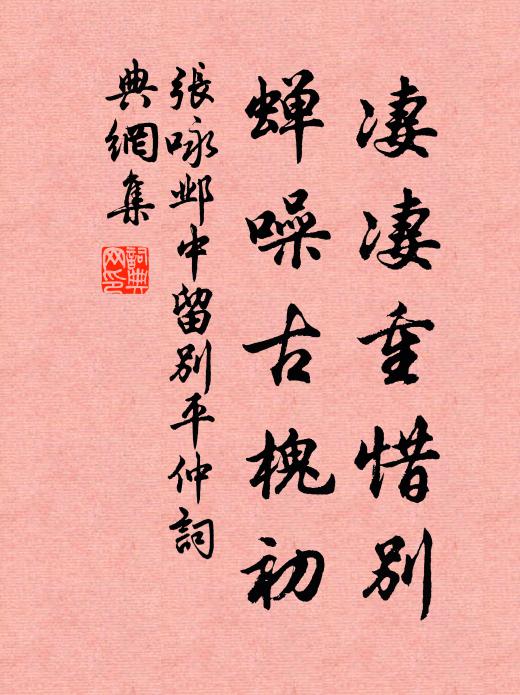 凄凄重惜别
蝉噪古槐初
張咏邺中留别平仲詞
典網集
詞典網印